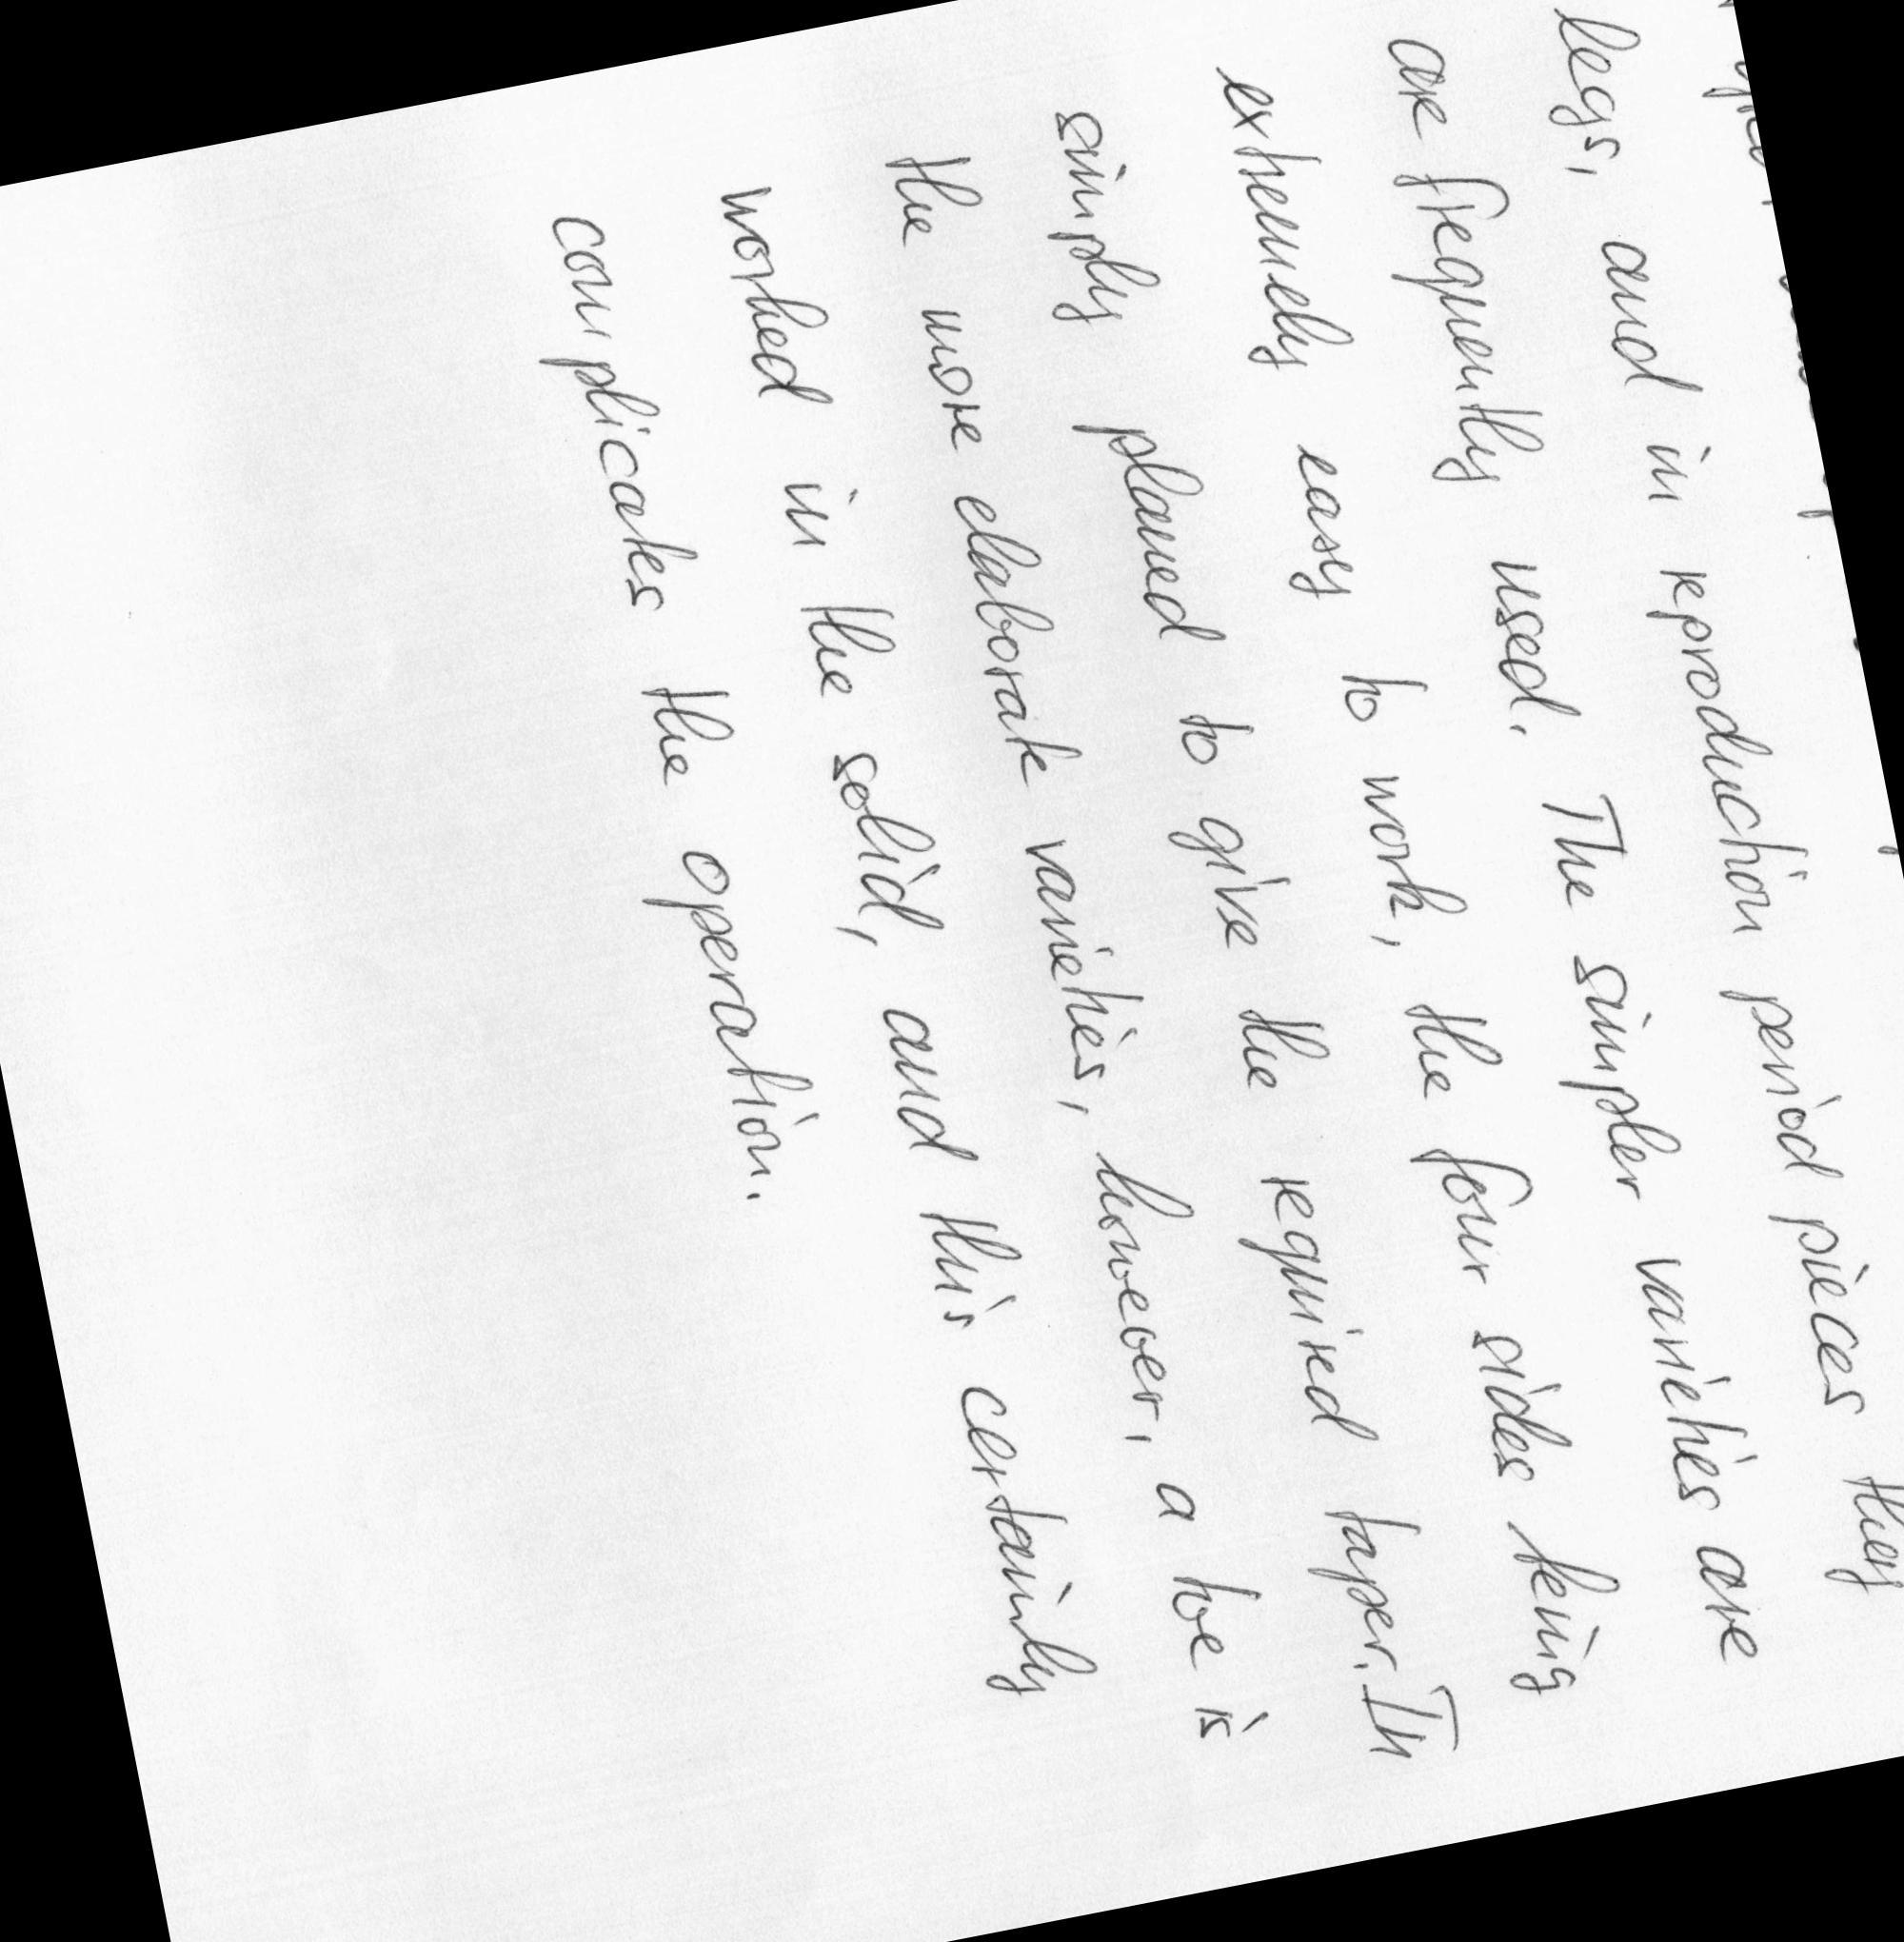 legs, and in reproduction period pieces they
are frequently used. The simpler varieties are
extremely easy to work, the four sides being
simply planed to give the required taper. In
the more elaborate varieties, however, a toe is
worked in the solid, and this certainly
complicates the operation.